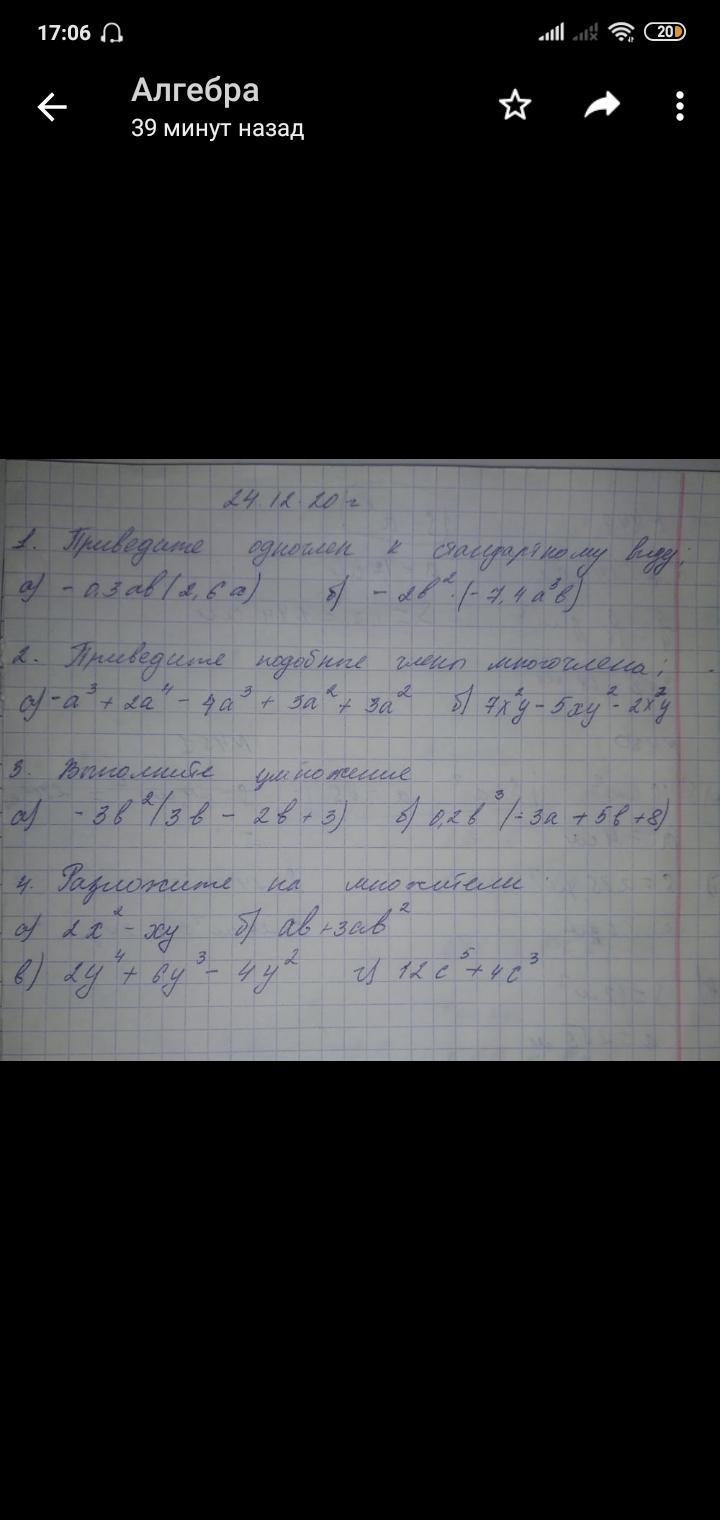 17:06
20
Алгебра
39 минут назад
24.12.20 г
1. Приведите одночлен к стандартному виду:
а) -0,3ав(2,6а) б) -2в²·(-7,4а³в)
2. Приведите подобные члены многочлена:
а) -а³ + 2а⁴ - 4а³ + 3а² + 3а² б) 7х²у - 5ху² - 2х²у
3. Выполните умножение
а) -3в²(3в - 2в + 3) б) 0,2в³(-3а + 5в + 8)
4. Разложите на множители
а) 2х² - ху б) ав + 3ав²
в) 2у⁴ + 6у³ - 4у² г) 12с⁵ + 4с³